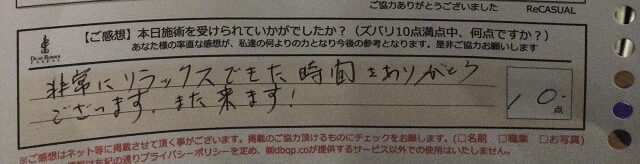 ご協力ありがとうございました
ReCASUAL
【ご感想】本日施術を受けられていかがでしたか？（ズバリ10点満点中、何点ですか？）
あなた様の率直な感想が、私達の何よりの力となり今後の参考となります。是非ご協力お願いします
非常にリラックスできた時間をありがとう
ございます。また来ます！
10.点
※ご感想はネット等に掲載させて頂く事がございます。掲載のご協力頂けるものにチェックをお願いします。(□名前 □職業 □お写真)
報は左記の通りプライバシーポリシーを定め、㈱dbqp.coが提供するサービス以外での使用はいたしません。